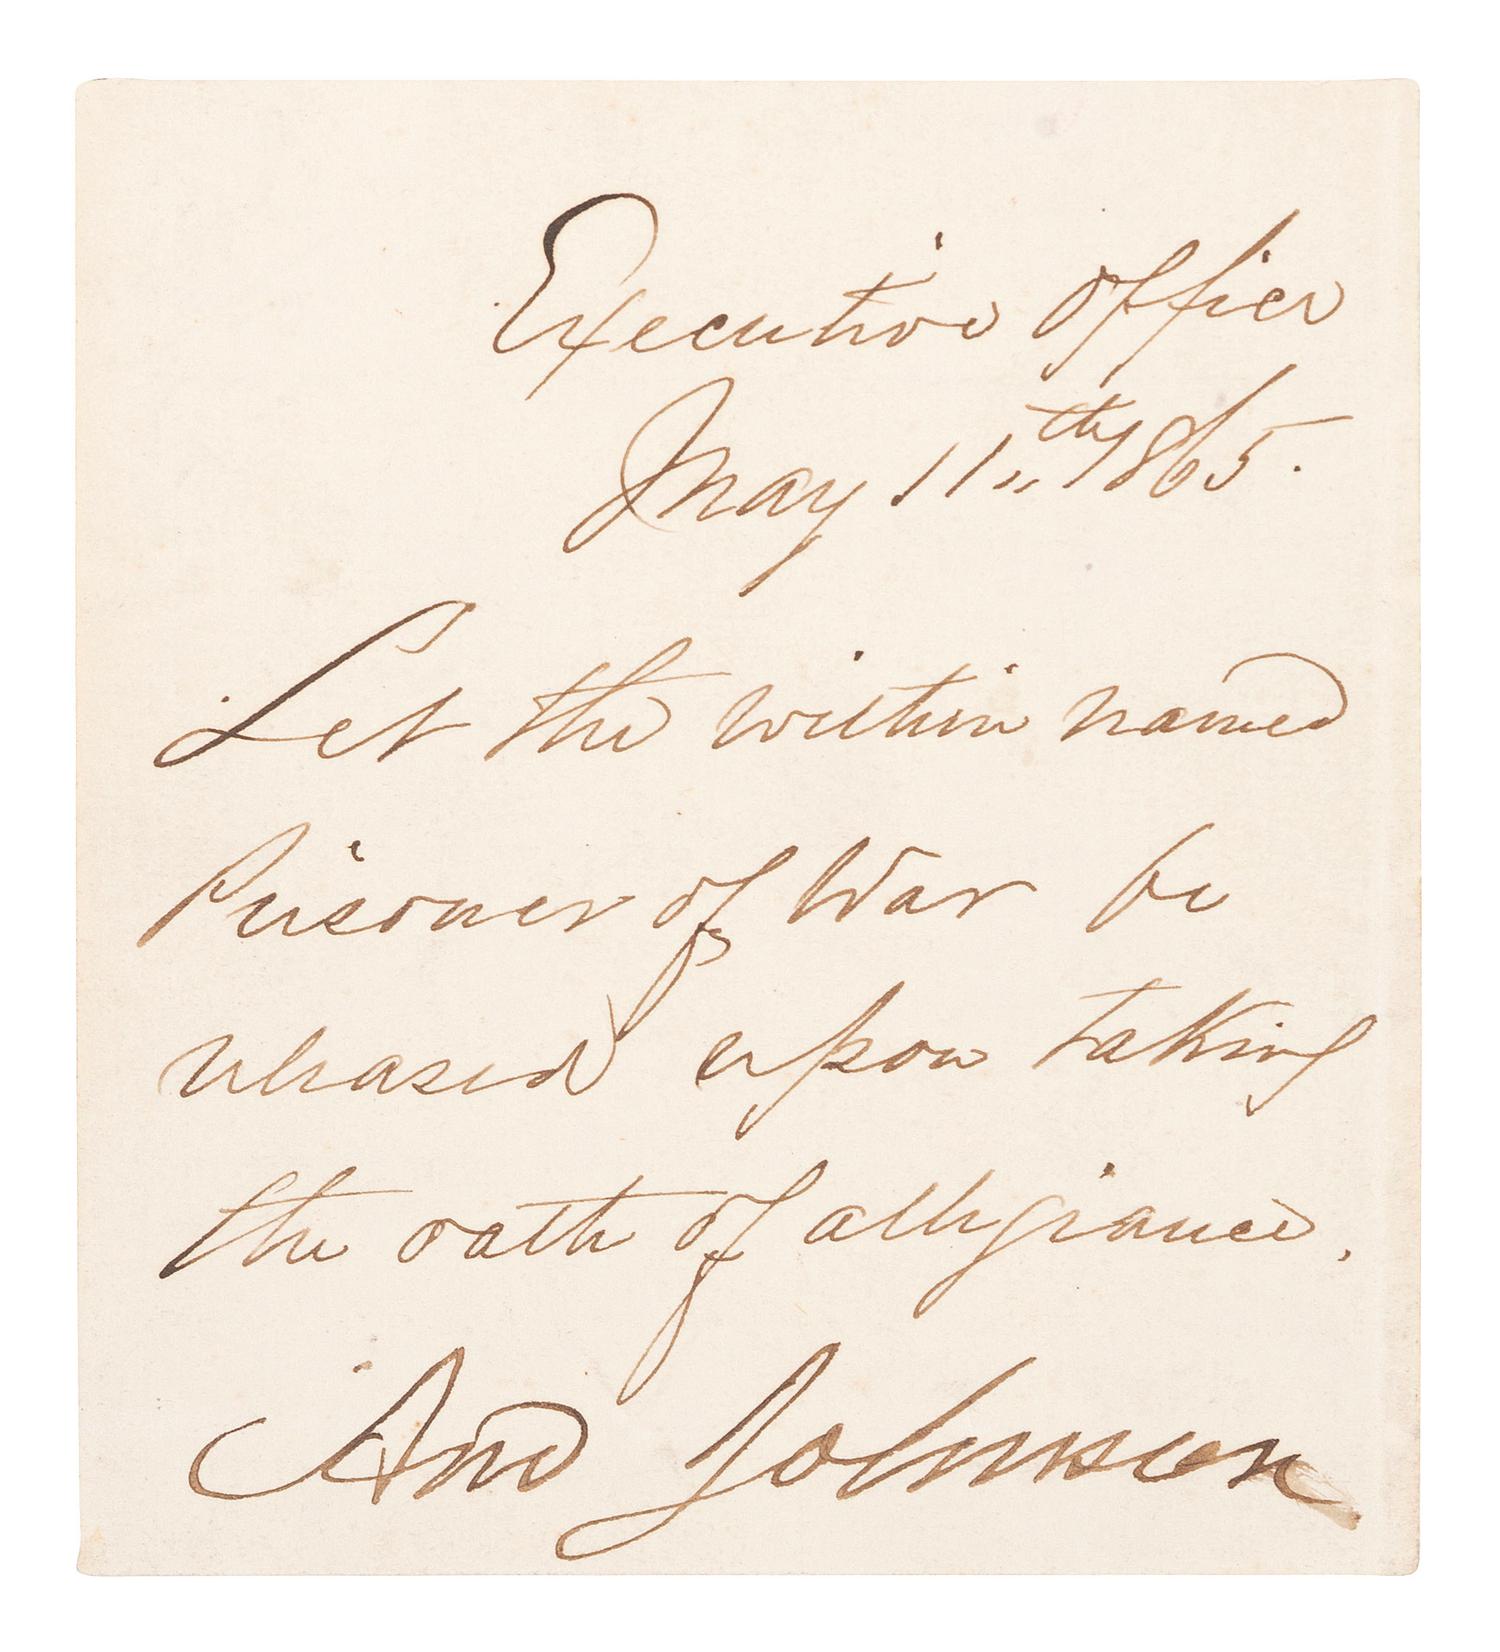 Executive Office
May 11,,th 1865.
Let the within named
Prisoner of War be
released upon taking
the oath of allegiance.
And Johnson